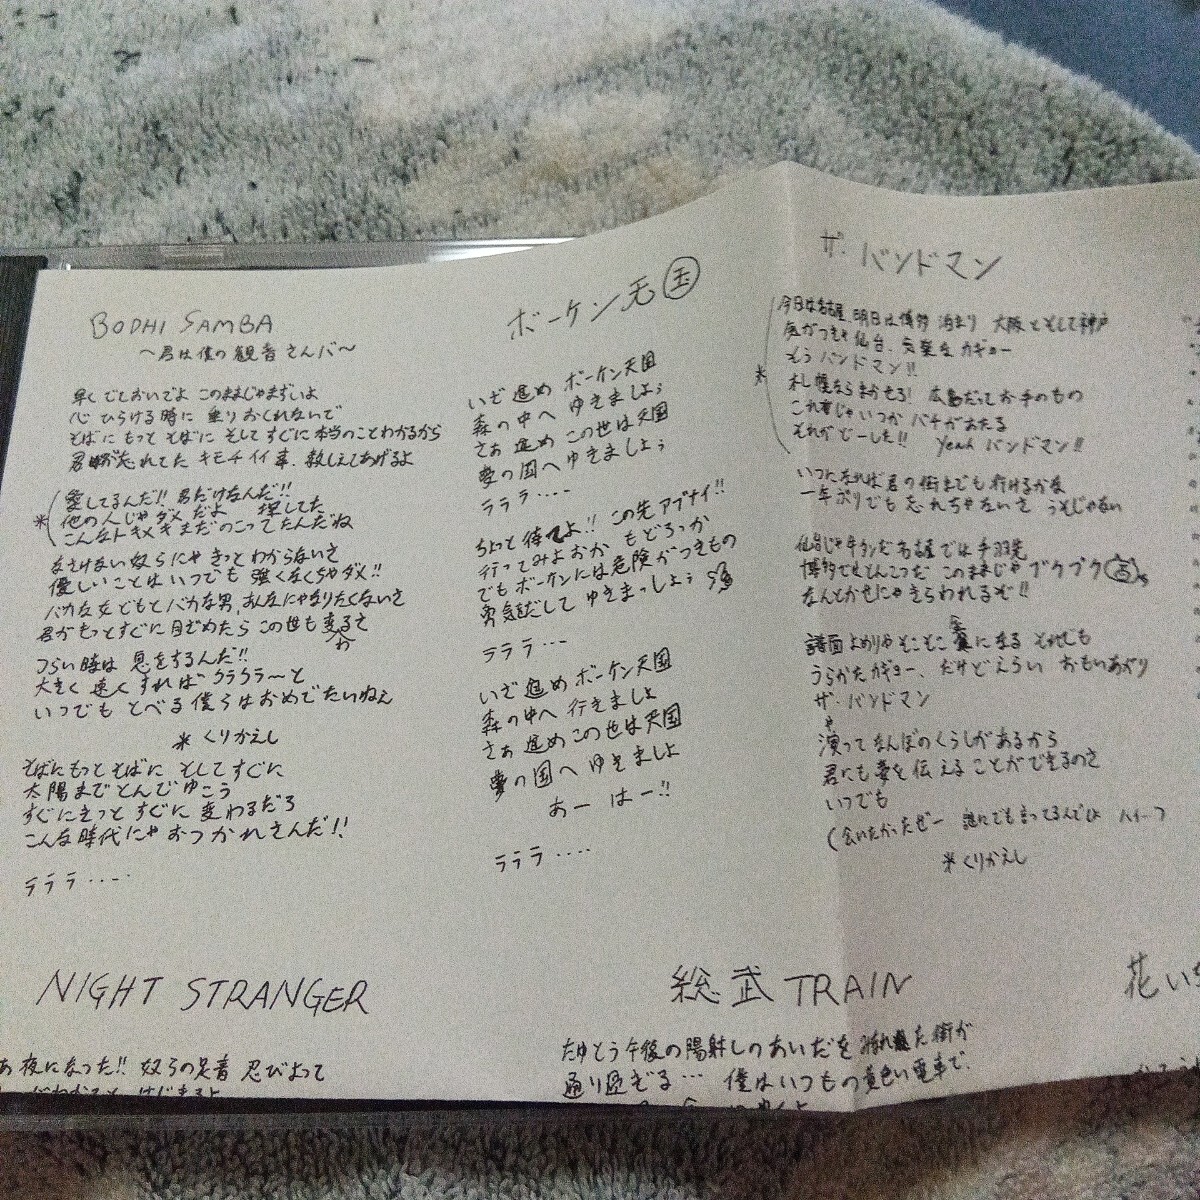 BODHI SAMBA
〜君は僕の観音さんバ〜
早くでておいでよ このままじゃまずいよ
心ひらける時に 乗りおくれないで
そばに もっと そばに そしてすぐに本当のことわかるから
君が忘れてた キモチイイ事、教しえてあげるよ
愛してるんだ!! 君だけなんだ!!
* 他の人じゃダメだよ 探してた
こんなトキメキまだのこってたんだね
なさけない奴らにゃ きっとわからないさ
優しいことは いつでも 強くなくちゃダメ!!
バカな女どもと バカな男、あんなにゃなりたくないさ
君がもっとすぐに目ざめたら この世も変るさ
わ
つらい時は 息をするんだ!!
大きく 速く すれば クラクラ〜と
いつでも とべる 僕らはおめでたいねぇ
* くりかえし
そばにもっと そばに そしてすぐに
太陽まで とんでゆこう
すぐにきっと すぐに 変わるだろ
こんな時代にゃ おつかれさんだ!!
ラララ.....
ボーケン天国
いざ進め ボーケン天国
森の中へ ゆきましょう
さぁ 進め この世は天国
夢の国へ ゆきましょう
ラララ....
ちょっと待てよ!! この先アブナイ!!
行ってみよおか もどろっか
でもボーケンには危険がつきもの
勇気だして ゆきまっしょう
ラララ...
いざ進め ボーケン天国
森の中へ 行きましょ
さぁ 進め この世は天国
夢の国へ ゆきましょ
おー はー!!
ラララ....
ザ・バンドマン
今日は名古屋、明日は博多 泊まり 大阪 そして神戸
仙台、気楽なカギョー
もう バンドマン!!
* 札幌ならまかせろ! 広島だってお手のもの
これ者じゃ いつか バチがあたる
それがどーした!! Yeah バンドマン!!
いつになれば君の街までも行けるかな
一年ぶりでも 忘れちゃないさ うそじゃない
仙台じゃ牛タンだ名古屋では手羽先
博多でもとんこつだ このままじゃブクブク
なんとかせにゃ きらわれるぞ!!
譜面よめりゃ そこそこ になる それでも
うらかたカギョー、だけどえらい おもいあがり
ザ・バンドマン
演ってなんぼのくらしがあるから
君にも夢を 伝えることができるのさ
いつでも
(会いたかったぜー 誰にでも言ってるんでしょ ハイーッ
* くりかえし
NIGHT STRANGER
夜になった!! 奴らの足音 忍びよって
総武TRAIN
たゆとう午後の陽射しのあいだを た街が
通り過ぎる... 僕はいつもの黄色い電車で、
花い